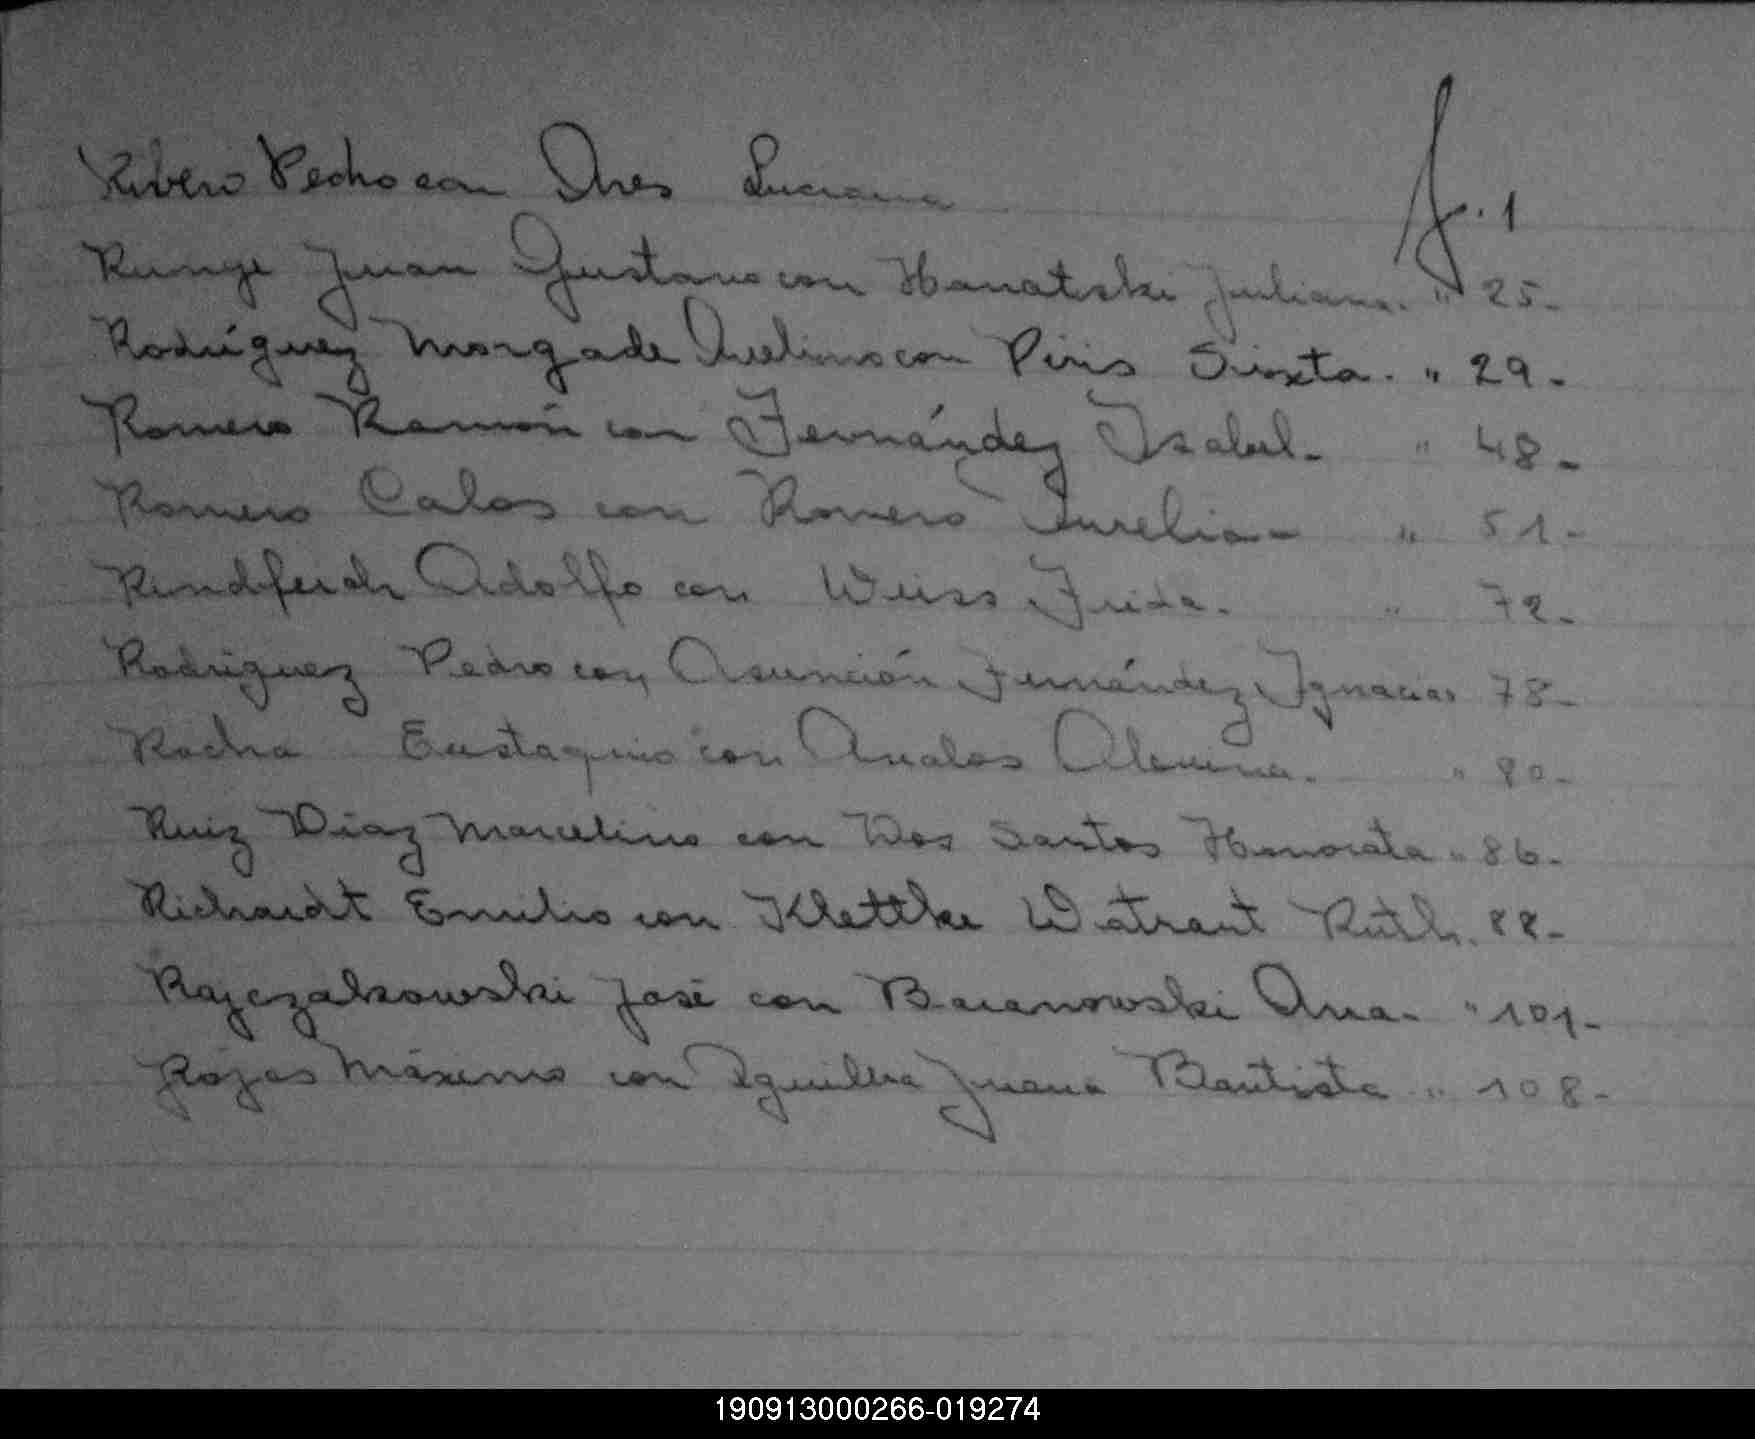 Rivero Pedro con Ares Luciana f. 1
Runge Juan Gustavo con Hanatiski Juliana. " 25-
Rodríguez Morgade Avelino con Piris Sixta. " 29-
Romero Ramón con Fernández Isabel- " 48-
Romero Calos con Romero Aurelia- " 51-
Rindfleich Adolfo con Weiss Frida. " 72-
Rodríguez Pedro con Asunción Fernández Ignacia 78-
Rocha Eustaquio con Avalos " 80-
Ruiz Díaz Marcelino con Dos Santos Honorata " 86-
Richardt Emilio con Klettke Watraut Ruth. 88-
Rajczakowski José con Baranowski Ana- " 101-
Rojas Máximo con Aguilera Juana Bautista " 108-
190913000266-019274